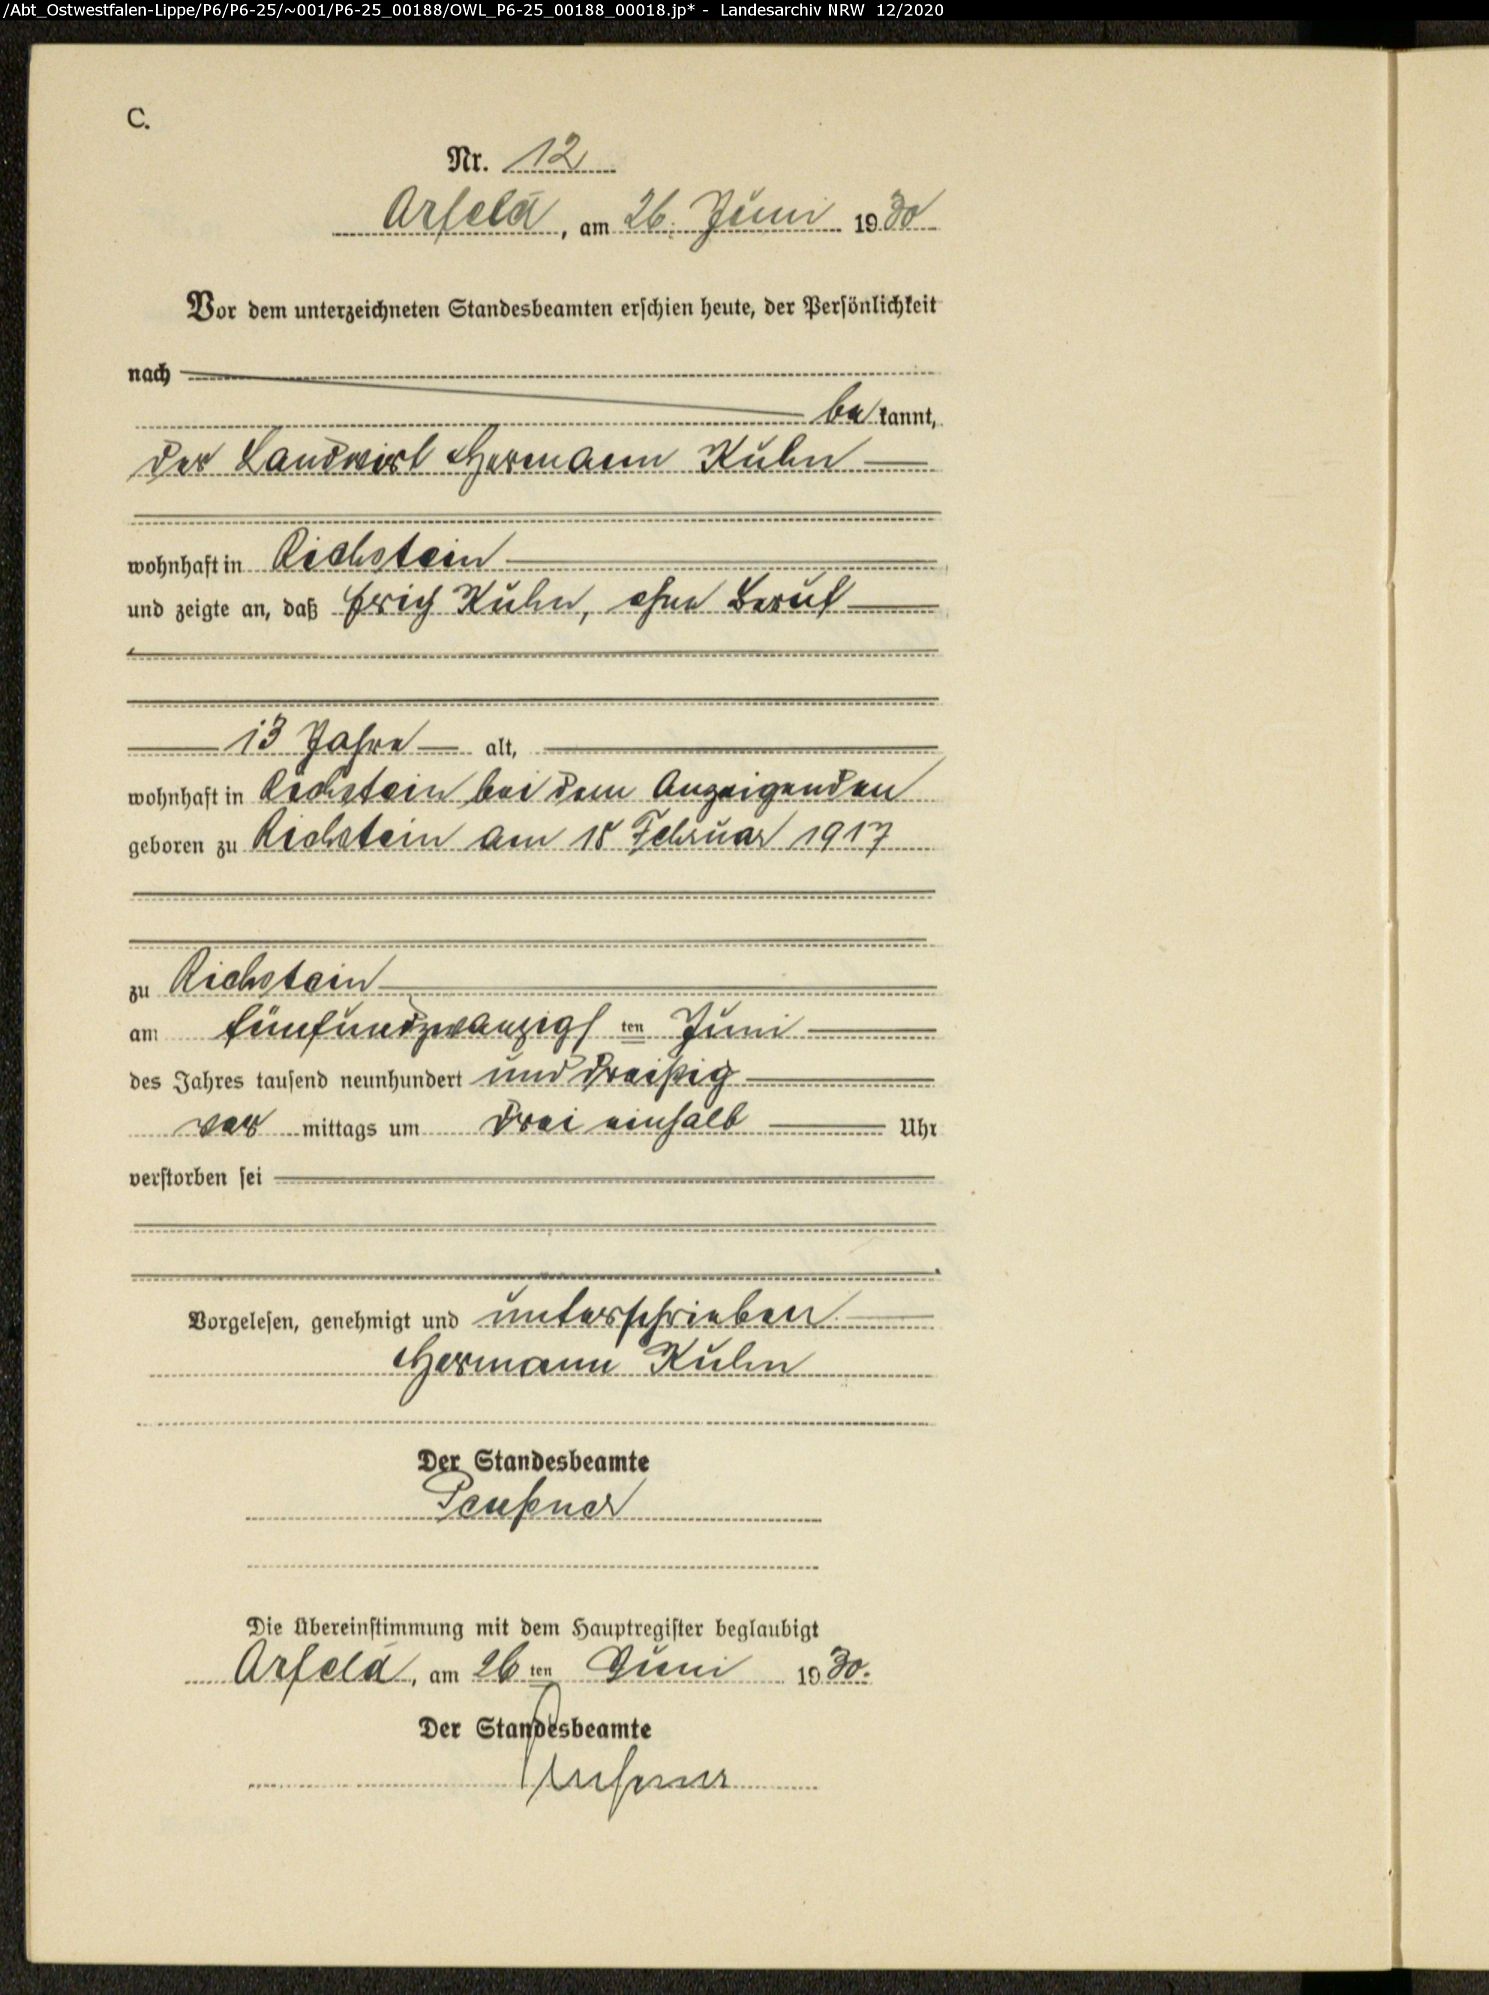 /Abt_Ostwestfalen-Lippe/P6/P6-25/~001/P6-25_00188/OWL_P6-25_00188_00018.jp* - Landesarchiv NRW 12/2020
C.
Nr. 12
Arfeld, am 26. Juni 1930
Vor dem unterzeichneten Standesbeamten erschien heute, der Persönlichkeit
nach
bekannt,
der Landwirt Hermann Kuhn
wohnhaft in Richstein
und zeigte an, daß Erich Kuhn, ohne Beruf
13 Jahre alt,
wohnhaft in Richstein bei dem Anzeigenden
geboren zu Richstein am 18 Februar 1917
zu Richstein
am fünfundzwanzigsten Juni
des Jahres tausend neunhundert und dreißig
vormittags um drei einhalb Uhr
verstorben sei
Vorgelesen, genehmigt und unterschrieben
Hermann Kuhn
Der Standesbeamte
Die Übereinstimmung mit dem Hauptregister beglaubigt
Arfeld, am 26ten Juni 1930.
Der Standesbeamte